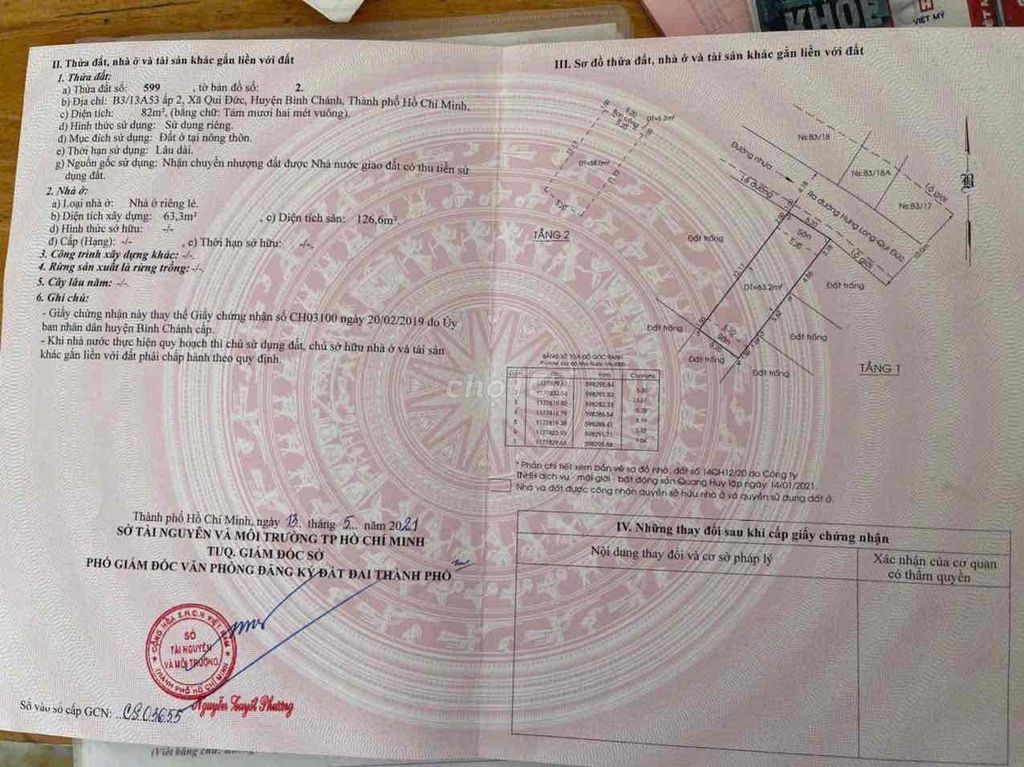 II. Thửa đất, nhà ở và tài sản khác gắn liền với đất
1. Thửa đất:
a) Thửa đất số: 599 , tờ bản đồ số: 2.
b) Địa chỉ: B3/13A53 ấp 2, Xã Qui Đức, Huyện Bình Chánh, Thành phố Hồ Chí Minh.
c) Diện tích: 82m², (bằng chữ: Tám mươi hai mét vuông).
d) Hình thức sử dụng: Sử dụng riêng.
đ) Mục đích sử dụng: Đất ở tại nông thôn.
e) Thời hạn sử dụng: Lâu dài.
g) Nguồn gốc sử dụng: Nhận chuyển nhượng đất được Nhà nước giao đất có thu tiền sử
dụng đất.
2. Nhà ở:
a) Loại nhà ở: Nhà ở riêng lẻ.
b) Diện tích xây dựng: 63,3m² , c) Diện tích sàn: 126,6m².
d) Hình thức sở hữu: -/-
đ) Cấp (Hạng): -/- , e) Thời hạn sở hữu: -/-.
3. Công trình xây dựng khác: -/-.
4. Rừng sản xuất là rừng trồng: -/-.
5. Cây lâu năm: -/-
6. Ghi chú:
- Giấy chứng nhận này thay thế Giấy chứng nhận số CH03100 ngày 20/02/2019 do Ủy
ban nhân dân huyện Bình Chánh cấp.
- Khi nhà nước thực hiện quy hoạch thì chủ sử dụng đất, chủ sở hữu nhà ở và tài sản
khác gắn liền với đất phải chấp hành theo quy định.
Thành phố Hồ Chí Minh, ngày 13 tháng 5 năm 2021
SỞ TÀI NGUYÊN VÀ MÔI TRƯỜNG TP HỒ CHÍ MINH
TUQ. GIÁM ĐỐC SỞ
PHÓ GIÁM ĐỐC VĂN PHÒNG ĐĂNG KÝ ĐẤT ĐAI THÀNH PHỐ
CỘNG HÒA X.H.C.N VIỆT NAM
SỞ
TÀI NGUYÊN
VÀ MÔI TRƯỜNG
THÀNH PHỐ HỒ CHÍ MINH
Nguyễn Tuyết Phương
Số vào sổ cấp GCN: CS03655
III. Sơ đồ thửa đất, nhà ở và tài sản khác gắn liền với đất
5.20
Ban công
5.20
DT=5.2m²
DT=58.0m²
TẦNG 2
Nhà B3/18
Nhà B3/18A
Nhà B3/17
Đường nhựa
Tê đường
Ra đường Hưng Long-Qui Đức
Lộ giới
Lộ giới
10.0m
B
Sân
5.20
DT=63.2m²
Sân
Đất trống
Đất trống
Đất trống
Đất trống
Đất trống
Đất trống
TẦNG 1
BẢNG KÊ TỌA ĐỘ GÓC RANH
chợ
* Phần chi tiết xem bản vẽ sơ đồ nhà, đất số 14QH12/20 do Công ty
TNHH dịch vụ - môi giới - bất động sản Quang Huy lập ngày 14/01/2021.
Nhà và đất được công nhận quyền sở hữu nhà ở và quyền sử dụng đất ở.
IV. Những thay đổi sau khi cấp giấy chứng nhận
Nội dung thay đổi và cơ sở pháp lý
Xác nhận của cơ quan
có thẩm quyền
KHOẺ
VIỆT MỸ
(Viết bằng chữ: